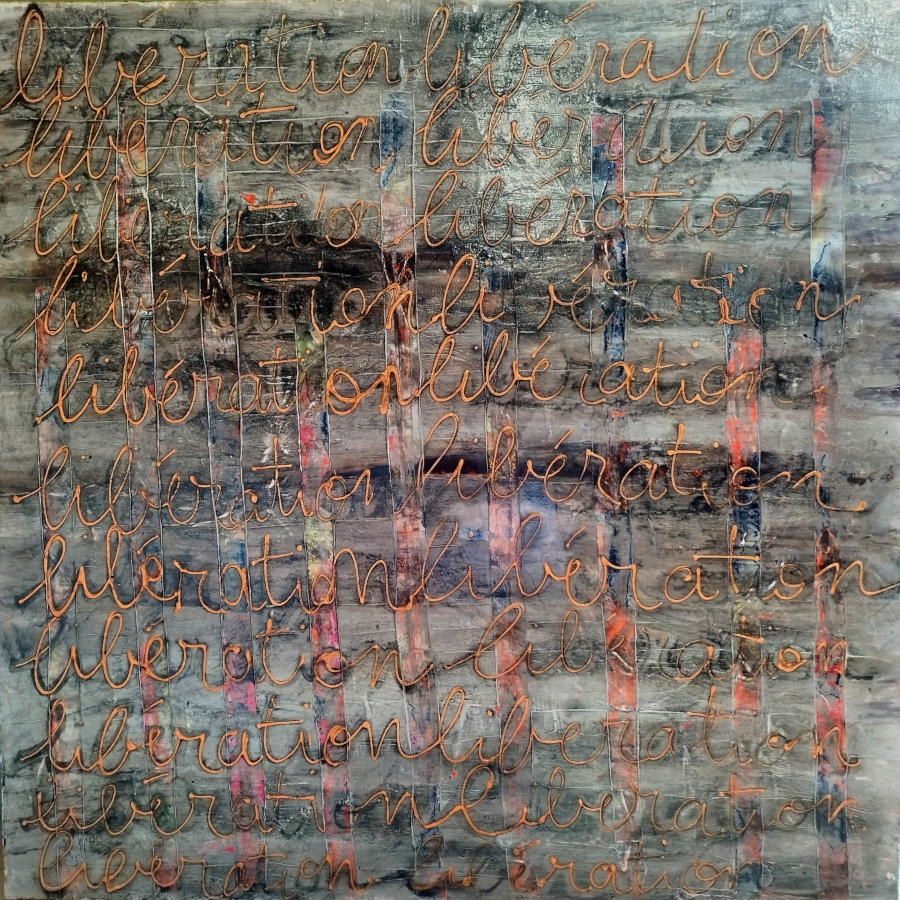 libération libération
libération libération
libération libération
libération li ération
libération libération
libération libération
libération libération
libération libération
libération libération
libération liberation
liberation libération